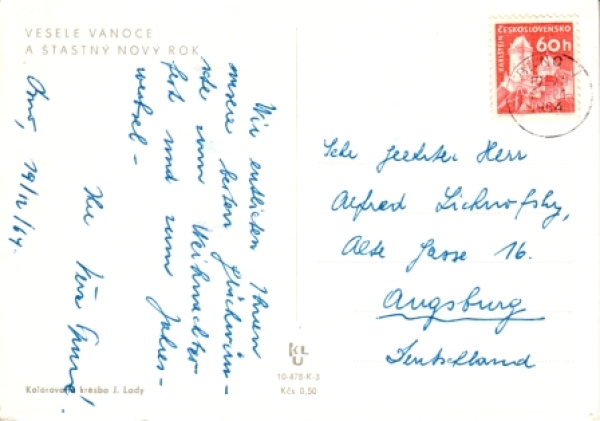 VESELÉ VÁNOCE
A ŠŤASTNÝ NOVÝ ROK
Brno, 19/12/64.
Wir entbieten Ihnen
unsere besten Glückwün-
sche zum Weihnachts-
fest und zum Jahres-
wechsel -
Ihr
Kolorovaná kresba J. Lady
KLU
10-478-K-3
Kčs 0,50
ČESKOSLOVENSKO
KARLŠTEJN
60h
Sehr geehrter Herr
Alfred Lichnofsky,
Alte Gasse 16.
Augsburg
Deutschland